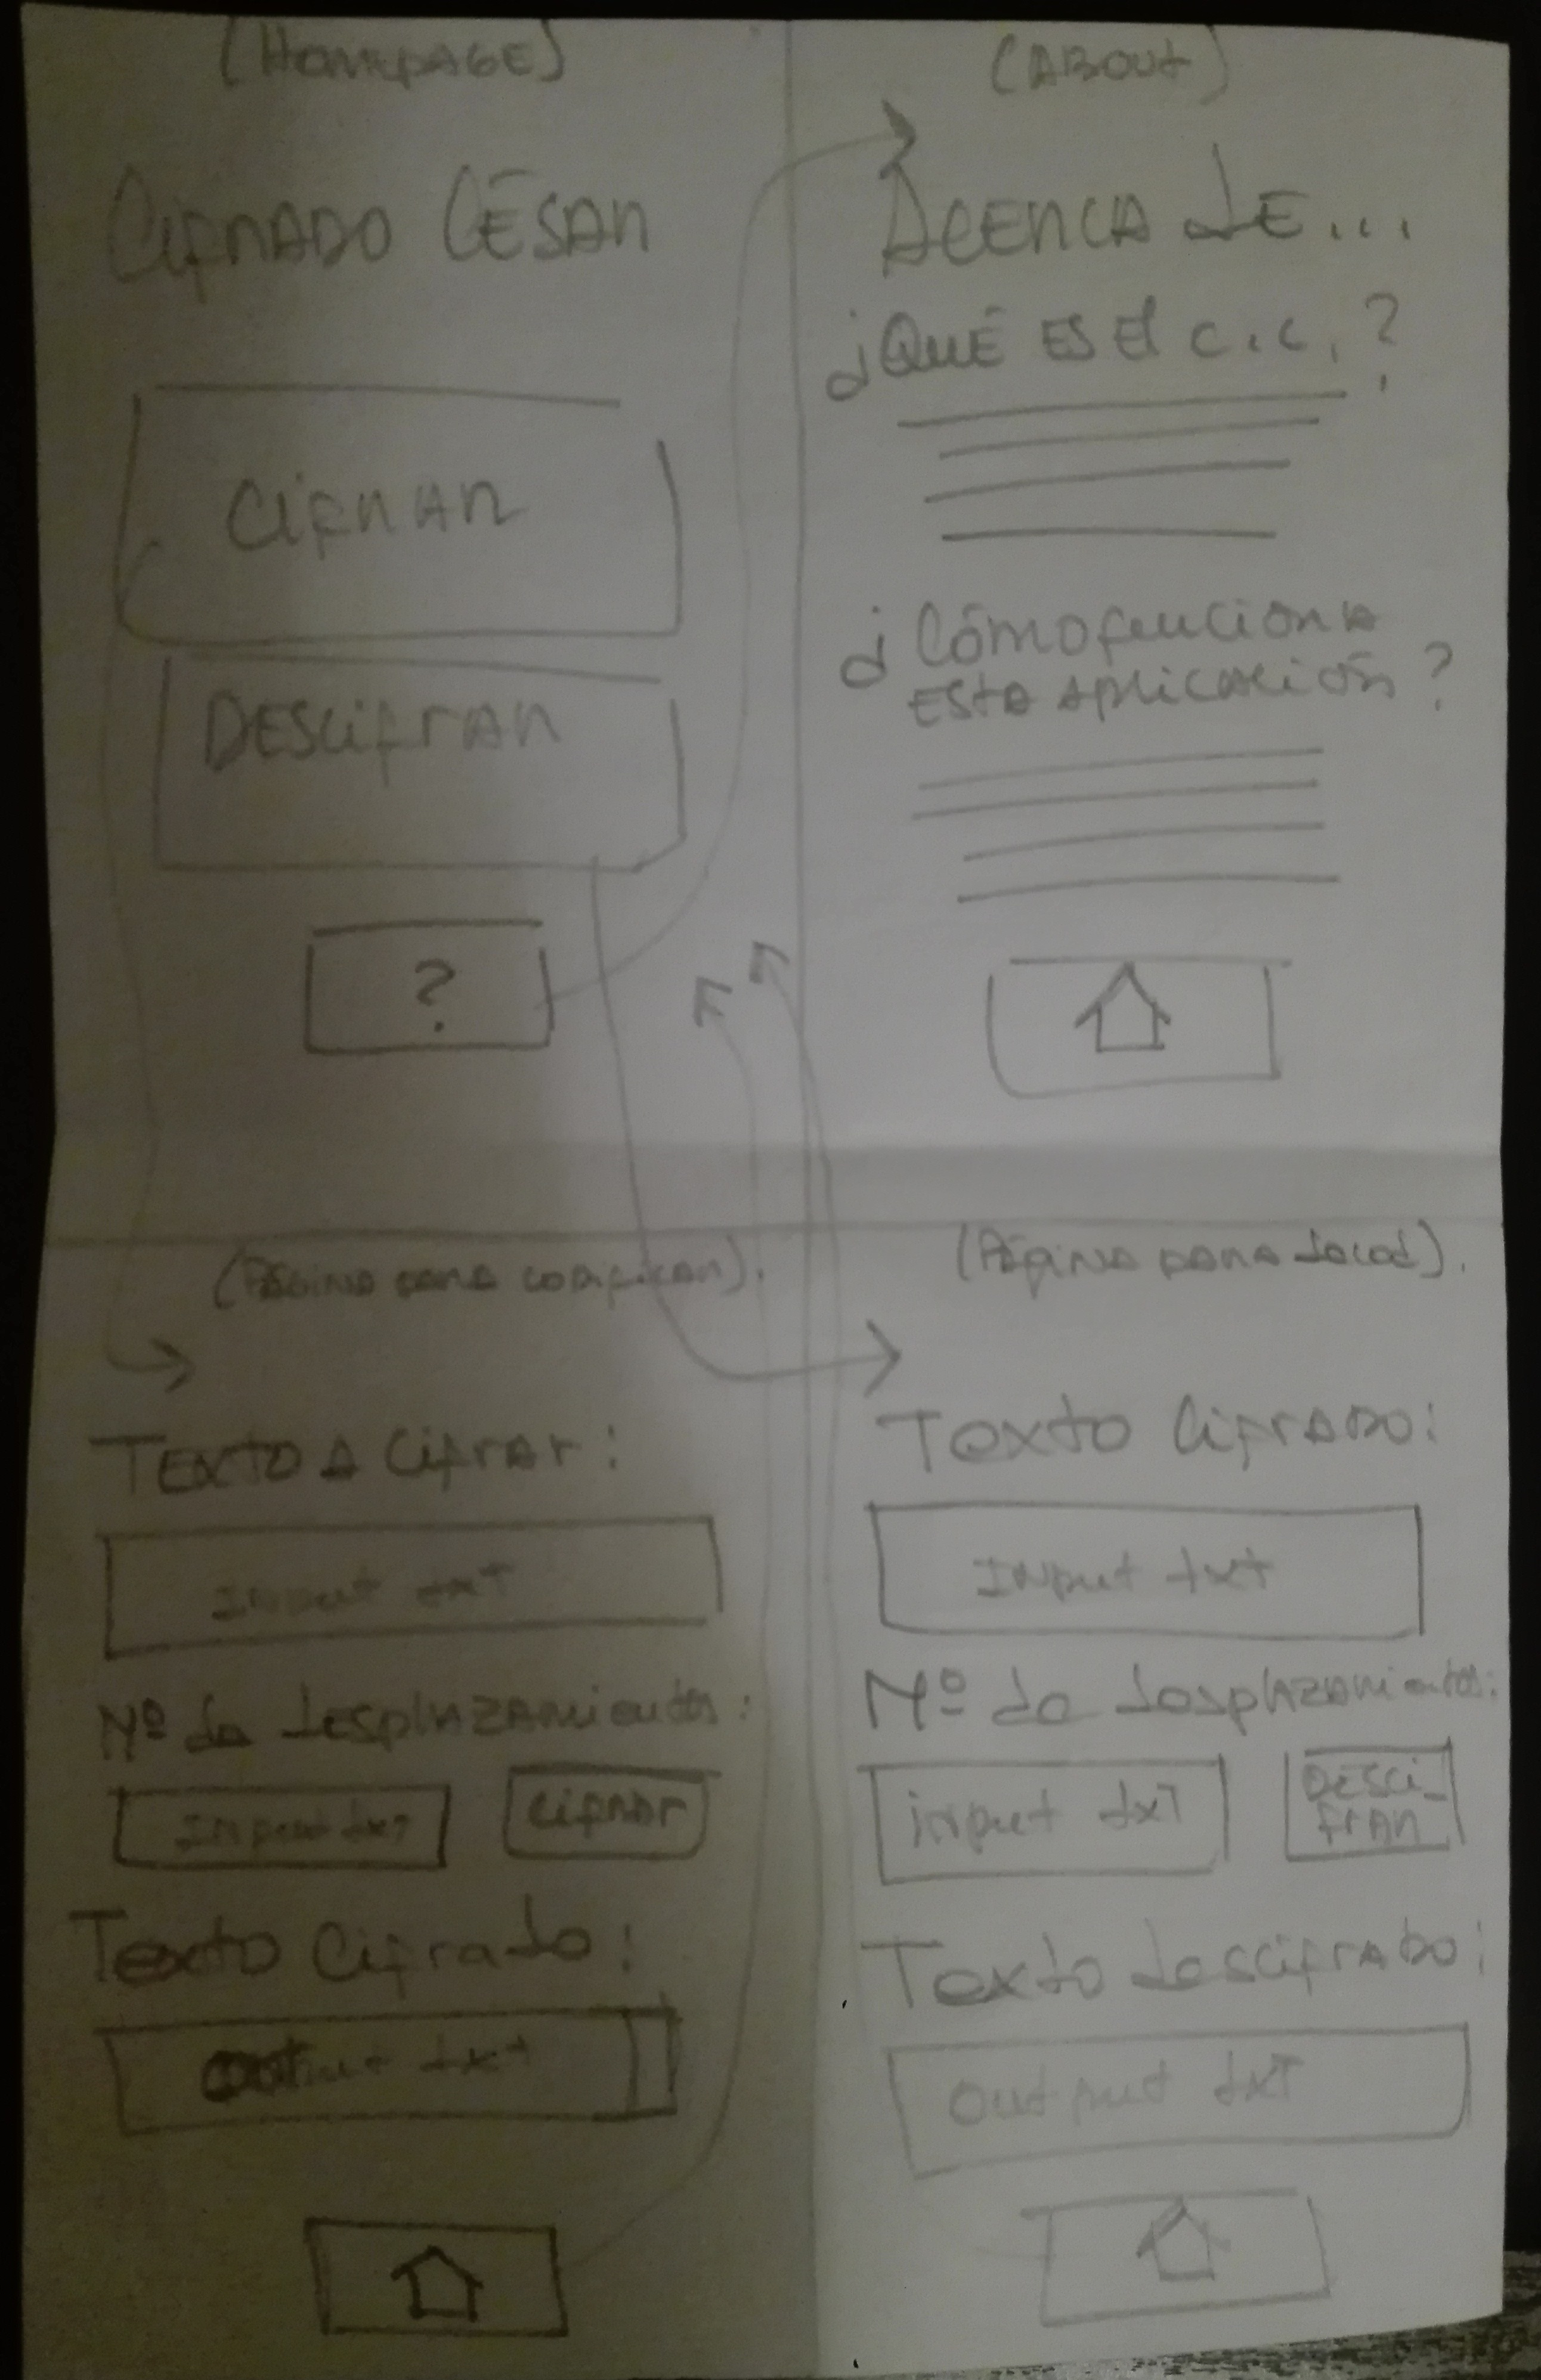 (HOMEPAGE)
CifrADO CÉSAR
CifrAR
DESCifrAR
?
(ABOUT)
ACERCA dE...
¿QUÉ ES El C.C.?
¿Cómo funciona
ESTA Aplicación?
(Página para codificar).
TEXTO A Cifrar:
Input txt
Nº de desplazamientos:
Input txt
Cifrar
Texto Cifrado:
output txt
(Página para decod).
Texto CifrADO:
Input txt
Nº de desplazamientos:
input txt
DESCi-
frAR
Texto descifrado:
Output txt